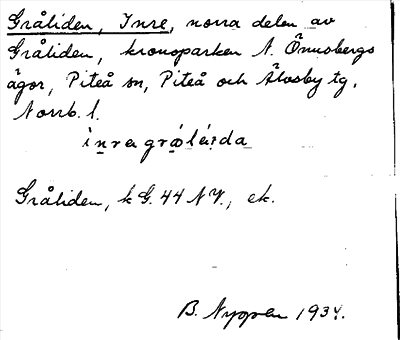 Gråliden, Inre, norra delen av
Gråliden, kronoparken N. Önusbergs
ägor, Piteå sn, Piteå och Älvsby tg,
Norrb. l.
ìnra grå̀lá:da
Gråliden, k G. 44 NV., ek.
B. Nyman 1934.